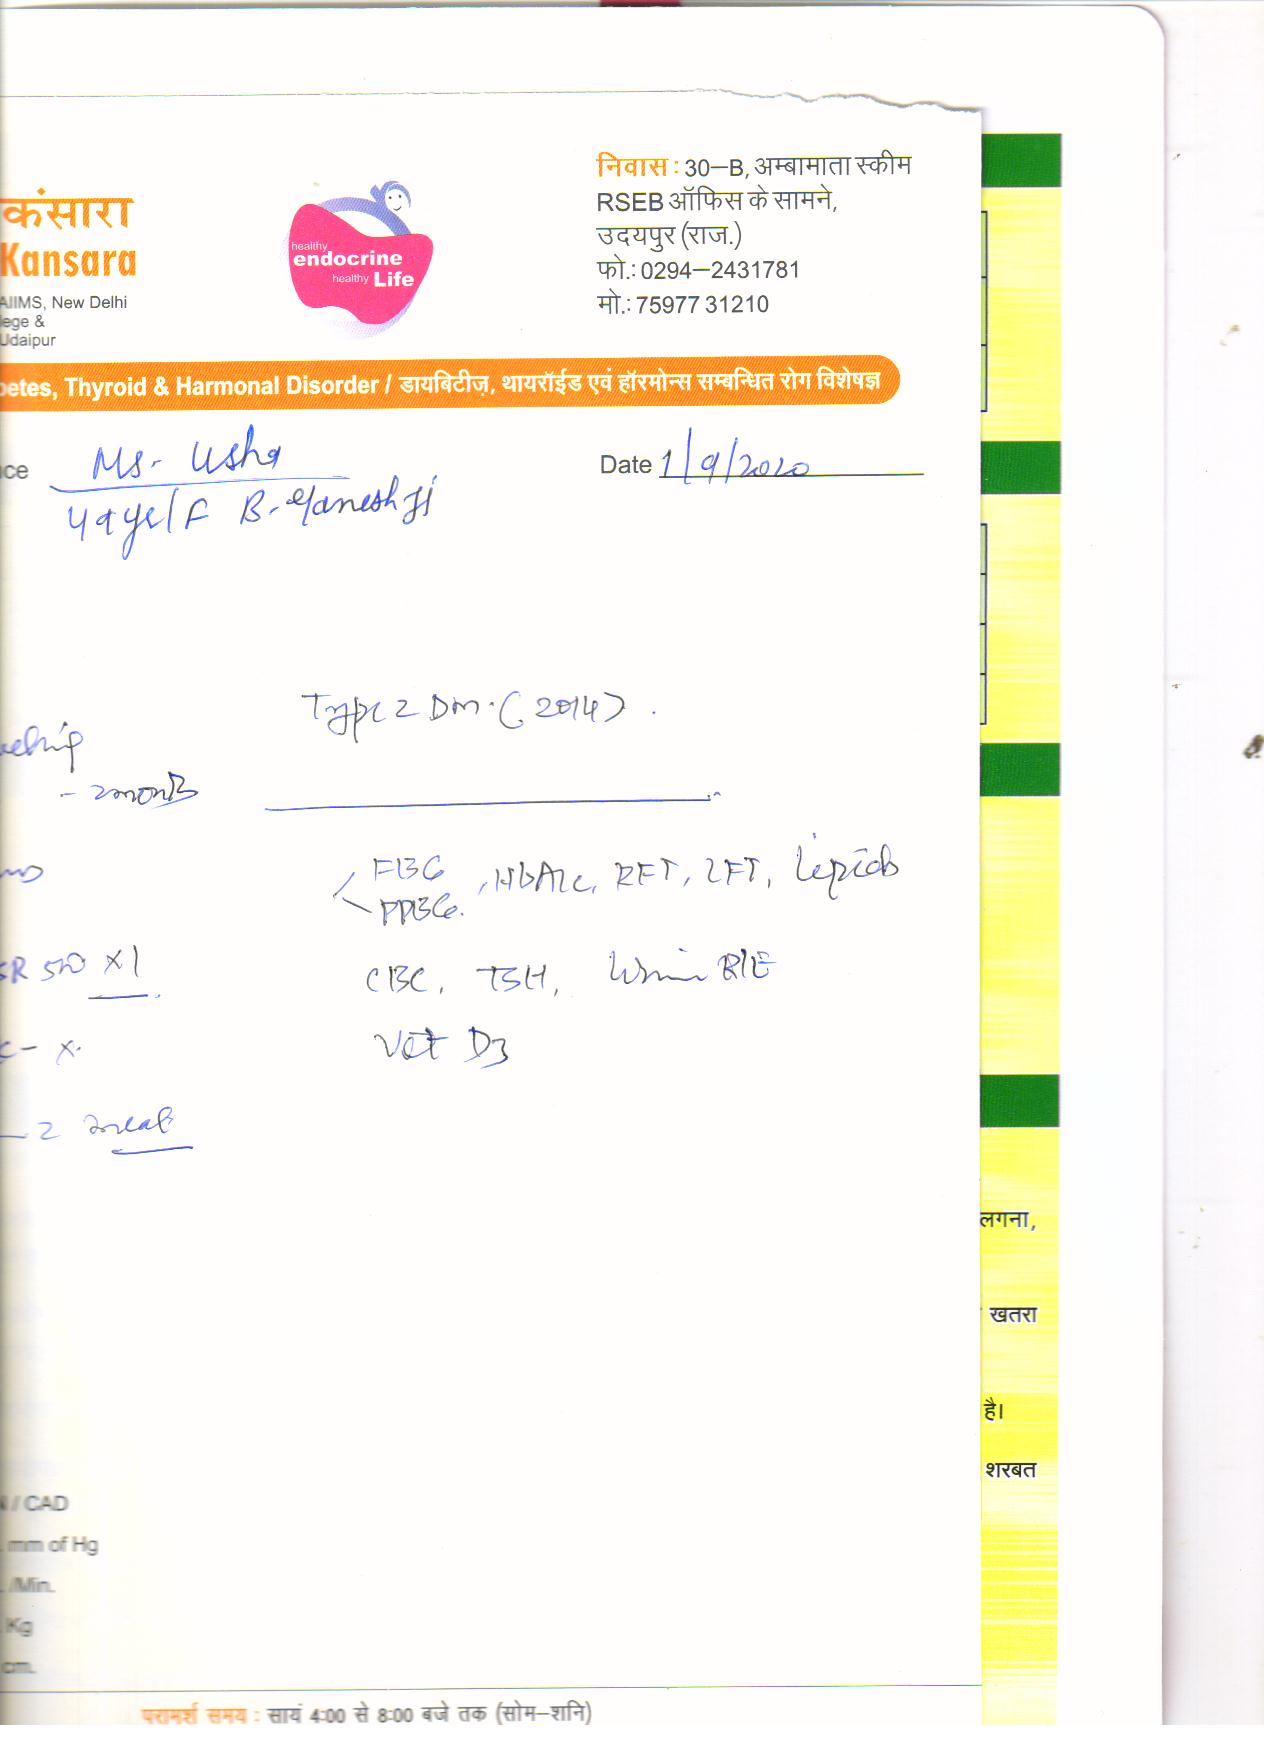 कंसारा
Kansara
AIIMS, New Delhi
lege &
Udaipur
healthy
endocrine
healthy Life
निवास : 30–B, अम्बामाता स्कीम
RSEB ऑफिस के सामने,
उदयपुर (राज.)
फो.: 0294–2431781
मो.: 75977 31210
betes, Thyroid & Harmonal Disorder / डायबिटीज़, थायरॉईड एवं हॉरमोन्स सम्बन्धित रोग विशेषज्ञ
nce Ms. Usha
Date 1/9/2020
49 yr/F B. Ganesh Ji
Type 2 Dm. (2014).
- 2 month
FBG
PPBG.
, HbA1c, RFT, LFT, Lipids
SR 500 x 1
CBC, TSH, Urine R/E
c - x.
Vit D3
- 2 meal
लगना,
खतरा
है।
शरबत
N / CAD
mm of Hg
/Min.
Kg
cm.
परामर्श समय : सायं 4:00 से 8:00 बजे तक (सोम–शनि)